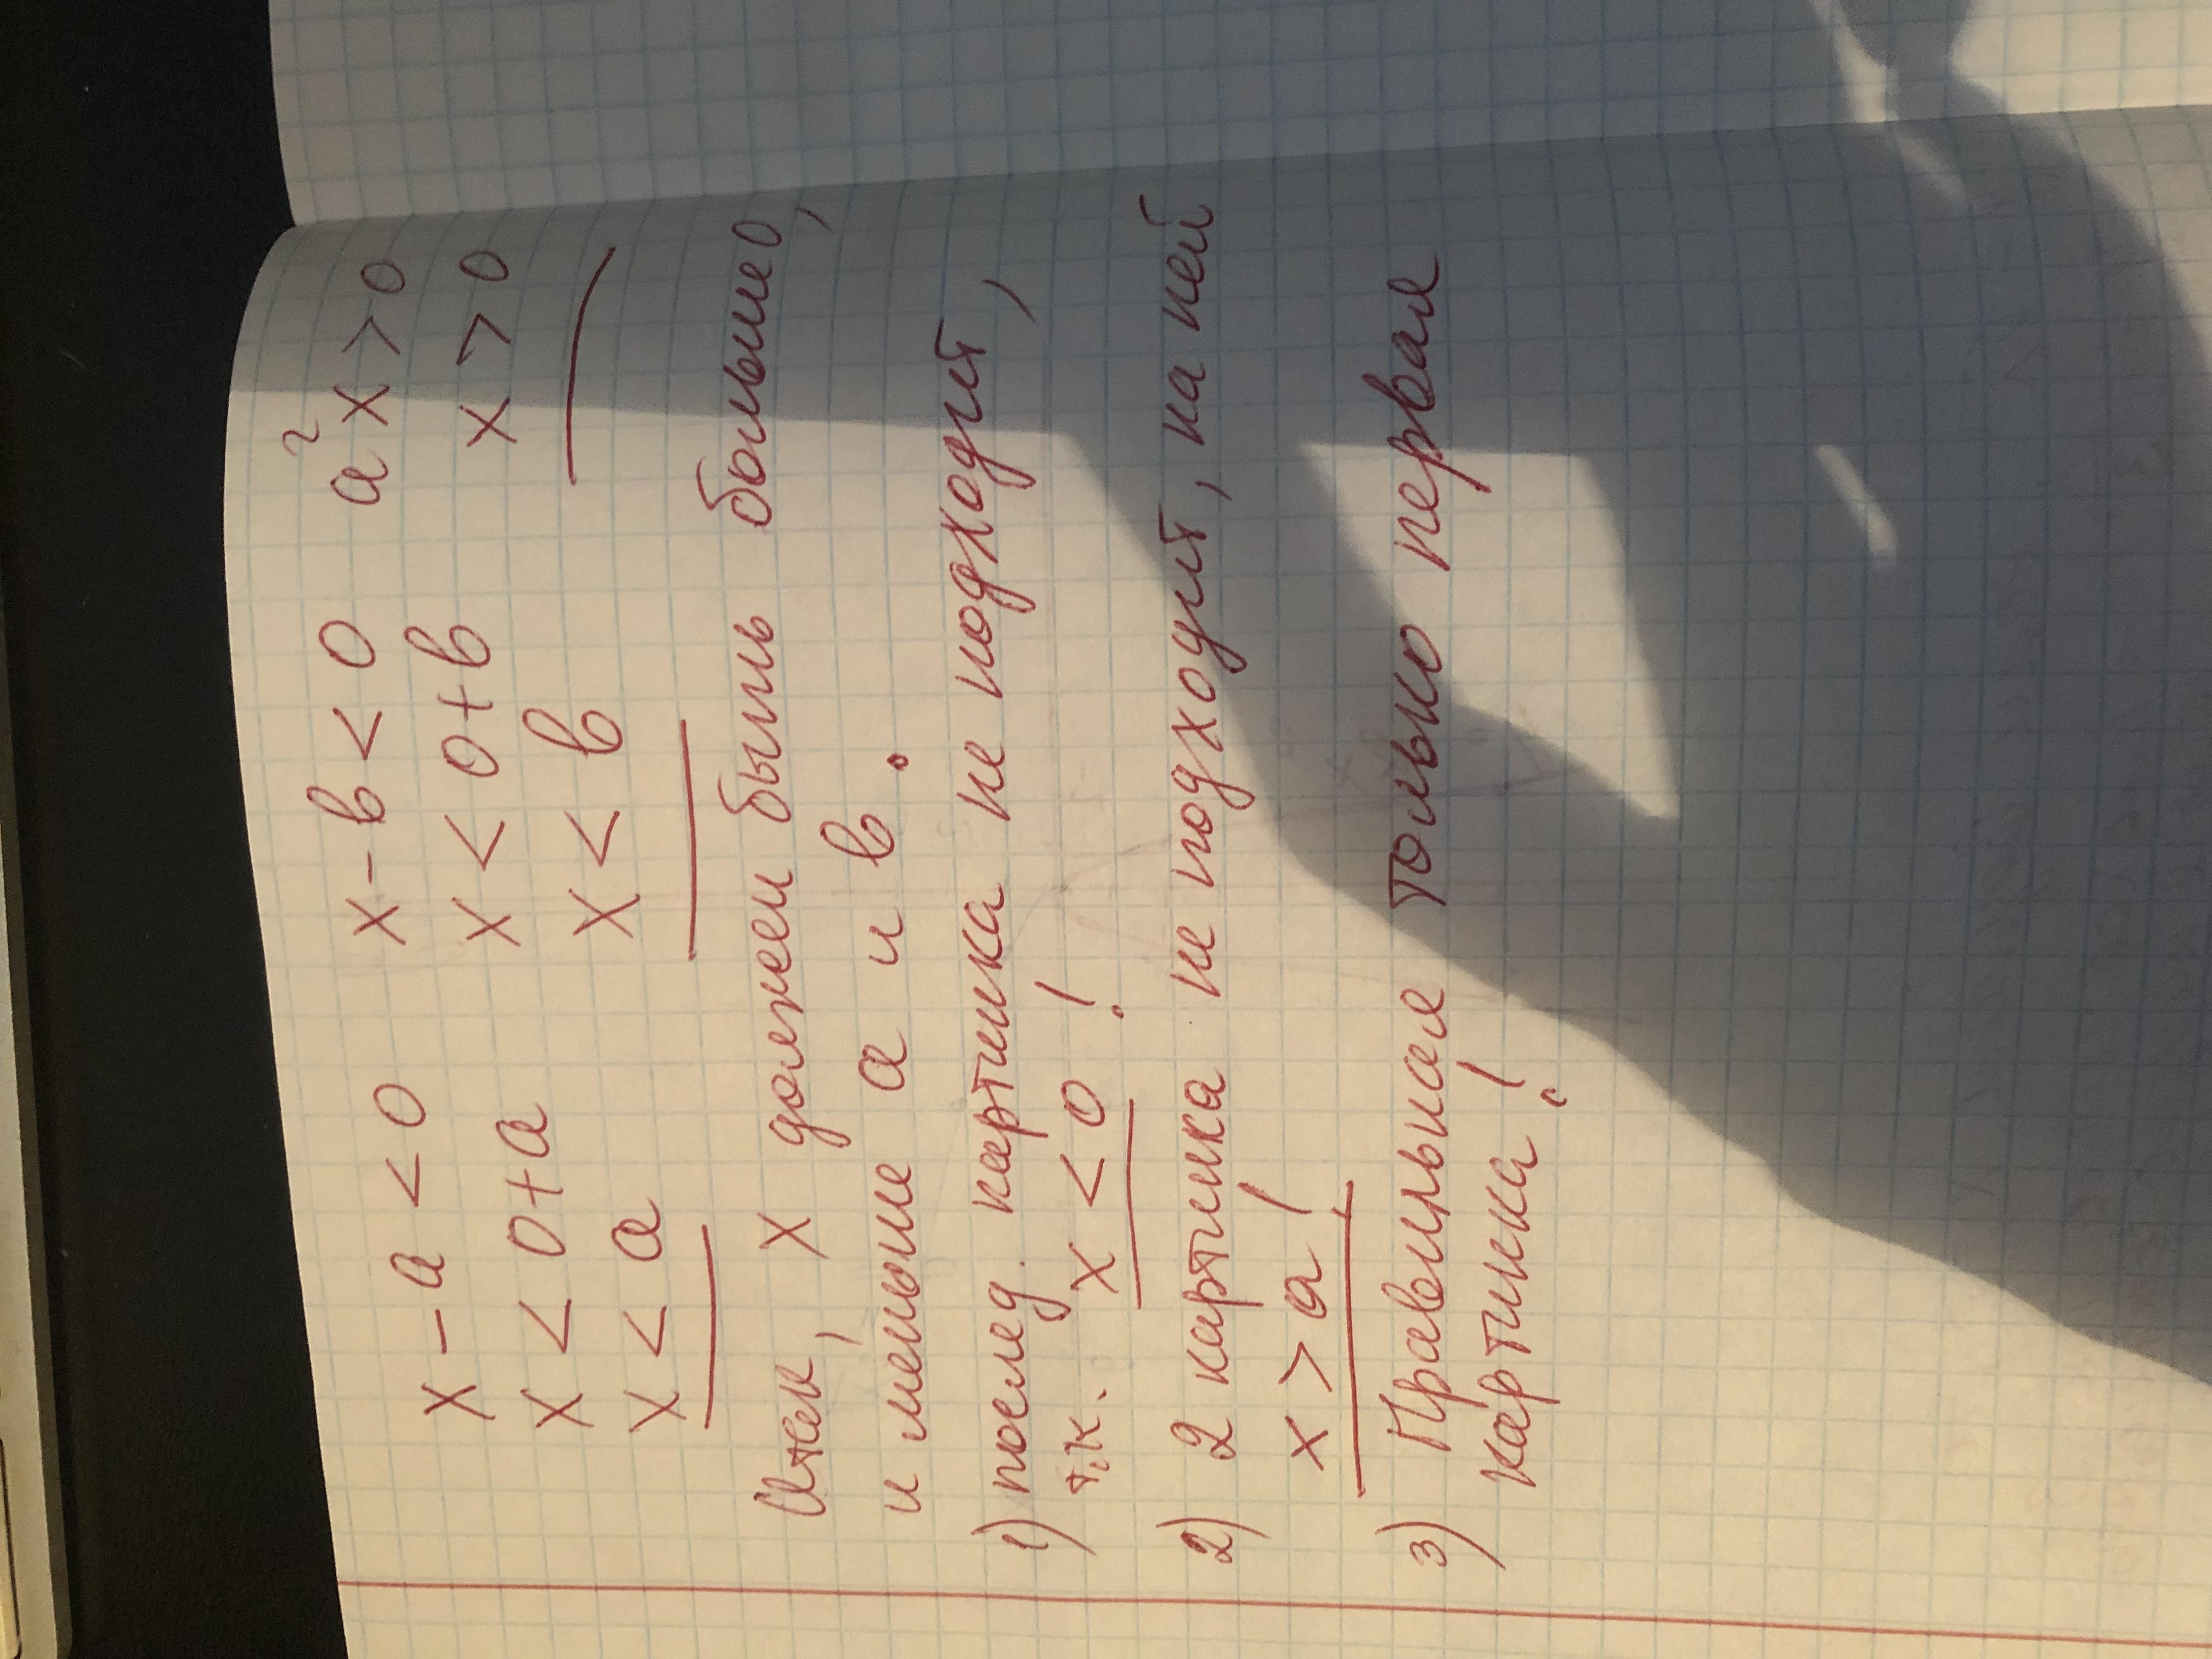 x - a < 0 x - в < 0 a² x > 0
x < 0 + a x < 0 + в x > 0
x < a x < в
Итак, x должен быть больше 0,
и меньше а и в.
1) послед. картинка не подходит,
т.к. x < 0 !
2) 2 картинка не подходит, на ней
x > a !
3) Правильная только первая
картинка !